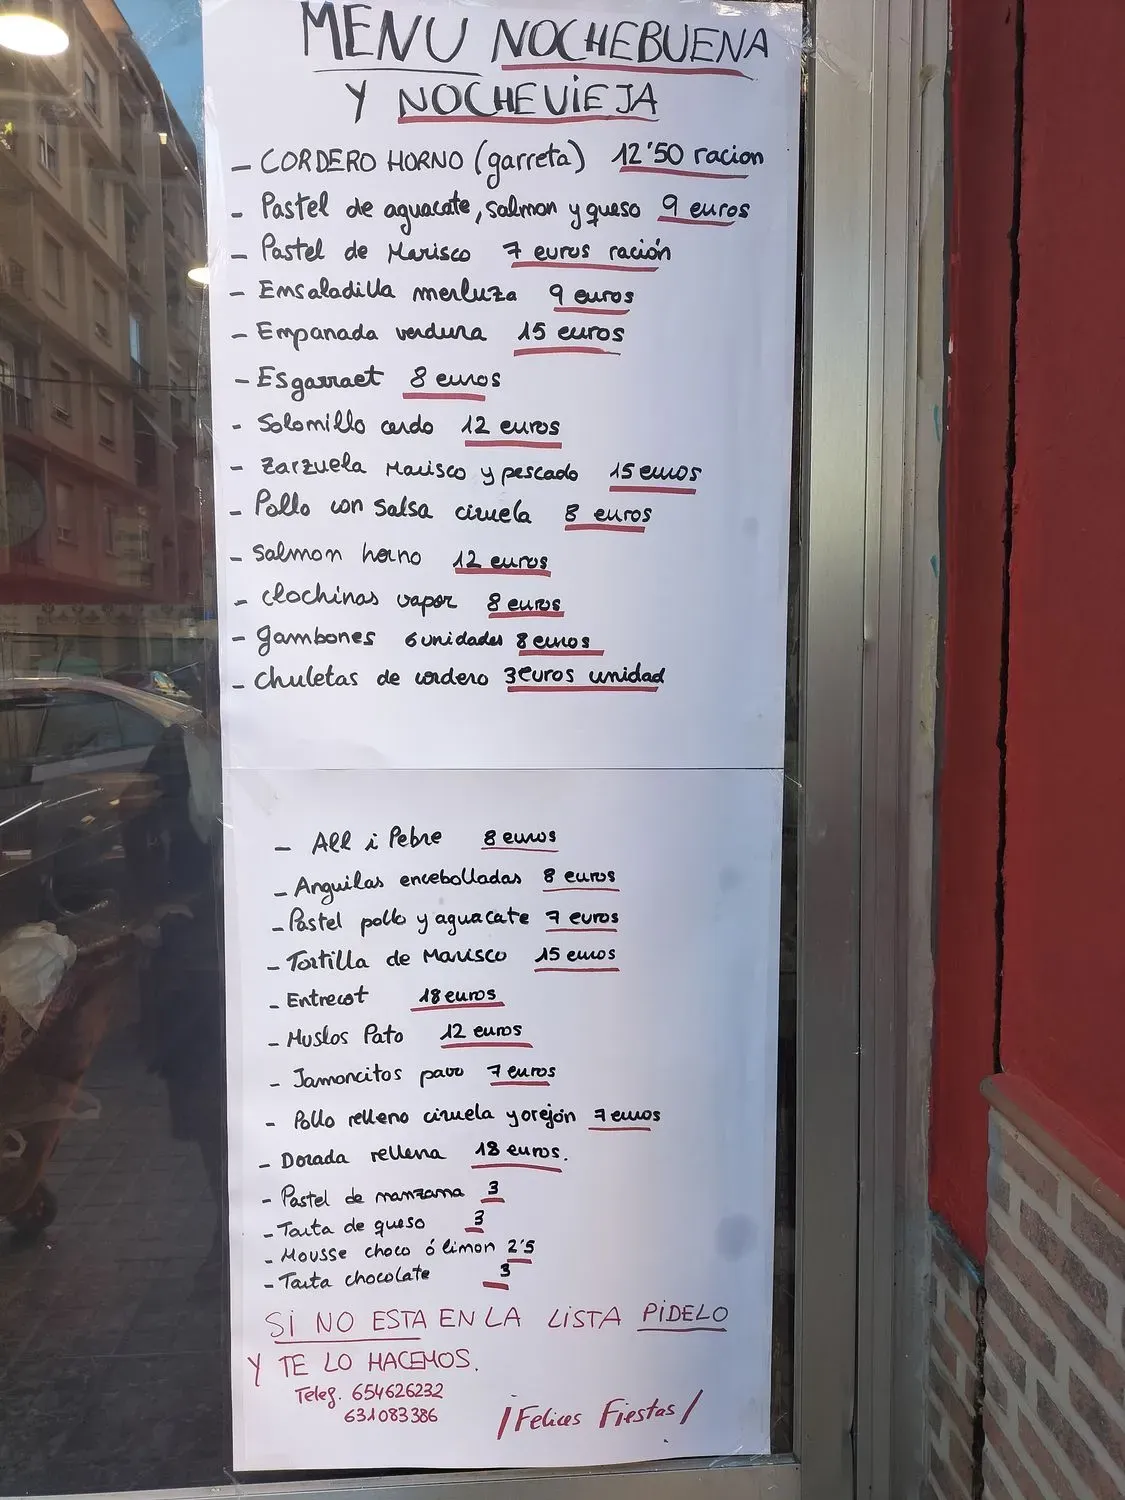 MENU NOCHEBUENA
Y NOCHEVIEJA
- CORDERO HORNO (garreta) 12'50 racion
- Pastel de aguacate, salmon y queso 9 euros
- Pastel de Marisco 7 euros ración
- Ensaladilla merluza 9 euros
- Empanada verdura 15 euros
- Esgarraet 8 euros
- Solomillo cerdo 12 euros
- Zarzuela Marisco y pescado 15 euros
- Pollo con salsa ciruela 8 euros
- Salmon horno 12 euros
- Clochinas vapor 8 euros
- gambones 6 unidades 8 euros
- Chuletas de cordero 3 euros unidad
- All i Pebre 8 euros
- Anguilas encebolladas 8 euros
- Pastel pollo y aguacate 7 euros
- Tortilla de Marisco 15 euros
- Entrecot 18 euros
- Muslos Pato 12 euros
- Jamoncitos pavo 7 euros
- Pollo relleno ciruela y orejón 7 euros
- Dorada rellena 18 euros.
- Pastel de manzana 3
- Tarta de queso 3
- Mousse choco ó limon 2'5
- Tarta chocolate 3
SI NO ESTA EN LA LISTA PIDELO
Y TE LO HACEMOS.
Telef. 654626232
631083386
¡Felices Fiestas!